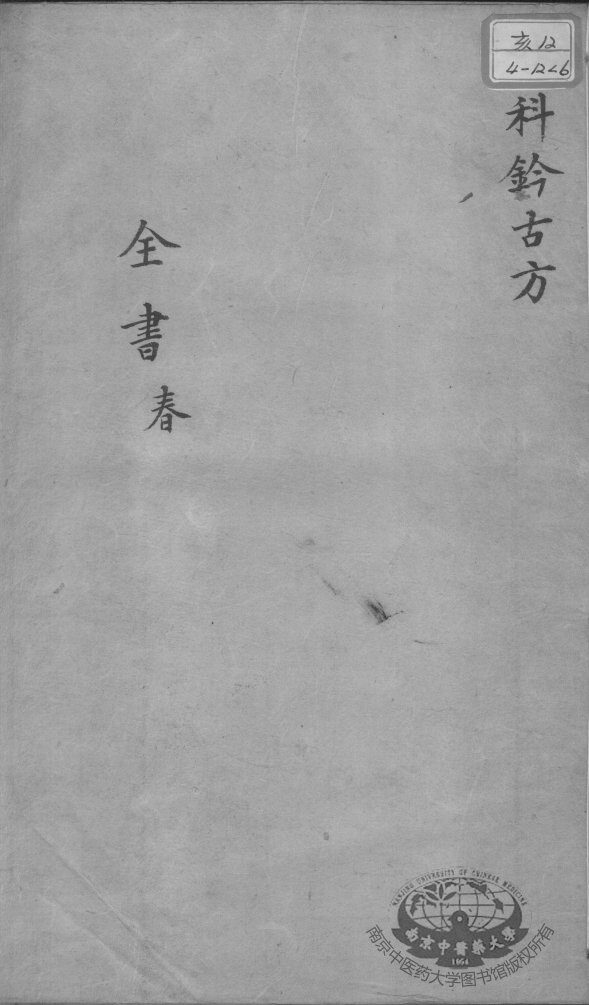 亥12
4-12<6
科鈐古方
全書春
NANJING UNIVERSITY OF CHINESE MEDICINE
南京中醫藥大學
1954
南京中医药大学图书馆版权所有